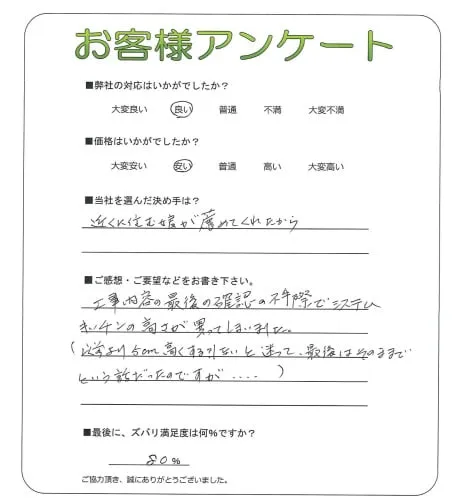 お客様アンケート
■弊社の対応はいかがでしたか？
大変良い 良い 普通 不満 大変不満
■価格はいかがでしたか？
大変安い 安い 普通 高い 大変高い
■当社を選んだ決め手は？
近くに住む娘が薦めてくれたから
■ご感想・ご要望などをお書き下さい。
工事内容の最後の確認の不手際でシステム
キッチンの高さが異ってしまいました。
(従来より5cm高くするかしないと迷って、最後はそのままで
という話だったのですが.....)
■最後に、ズバリ満足度は何%ですか？
80%
ご協力頂き、誠にありがとうございました。